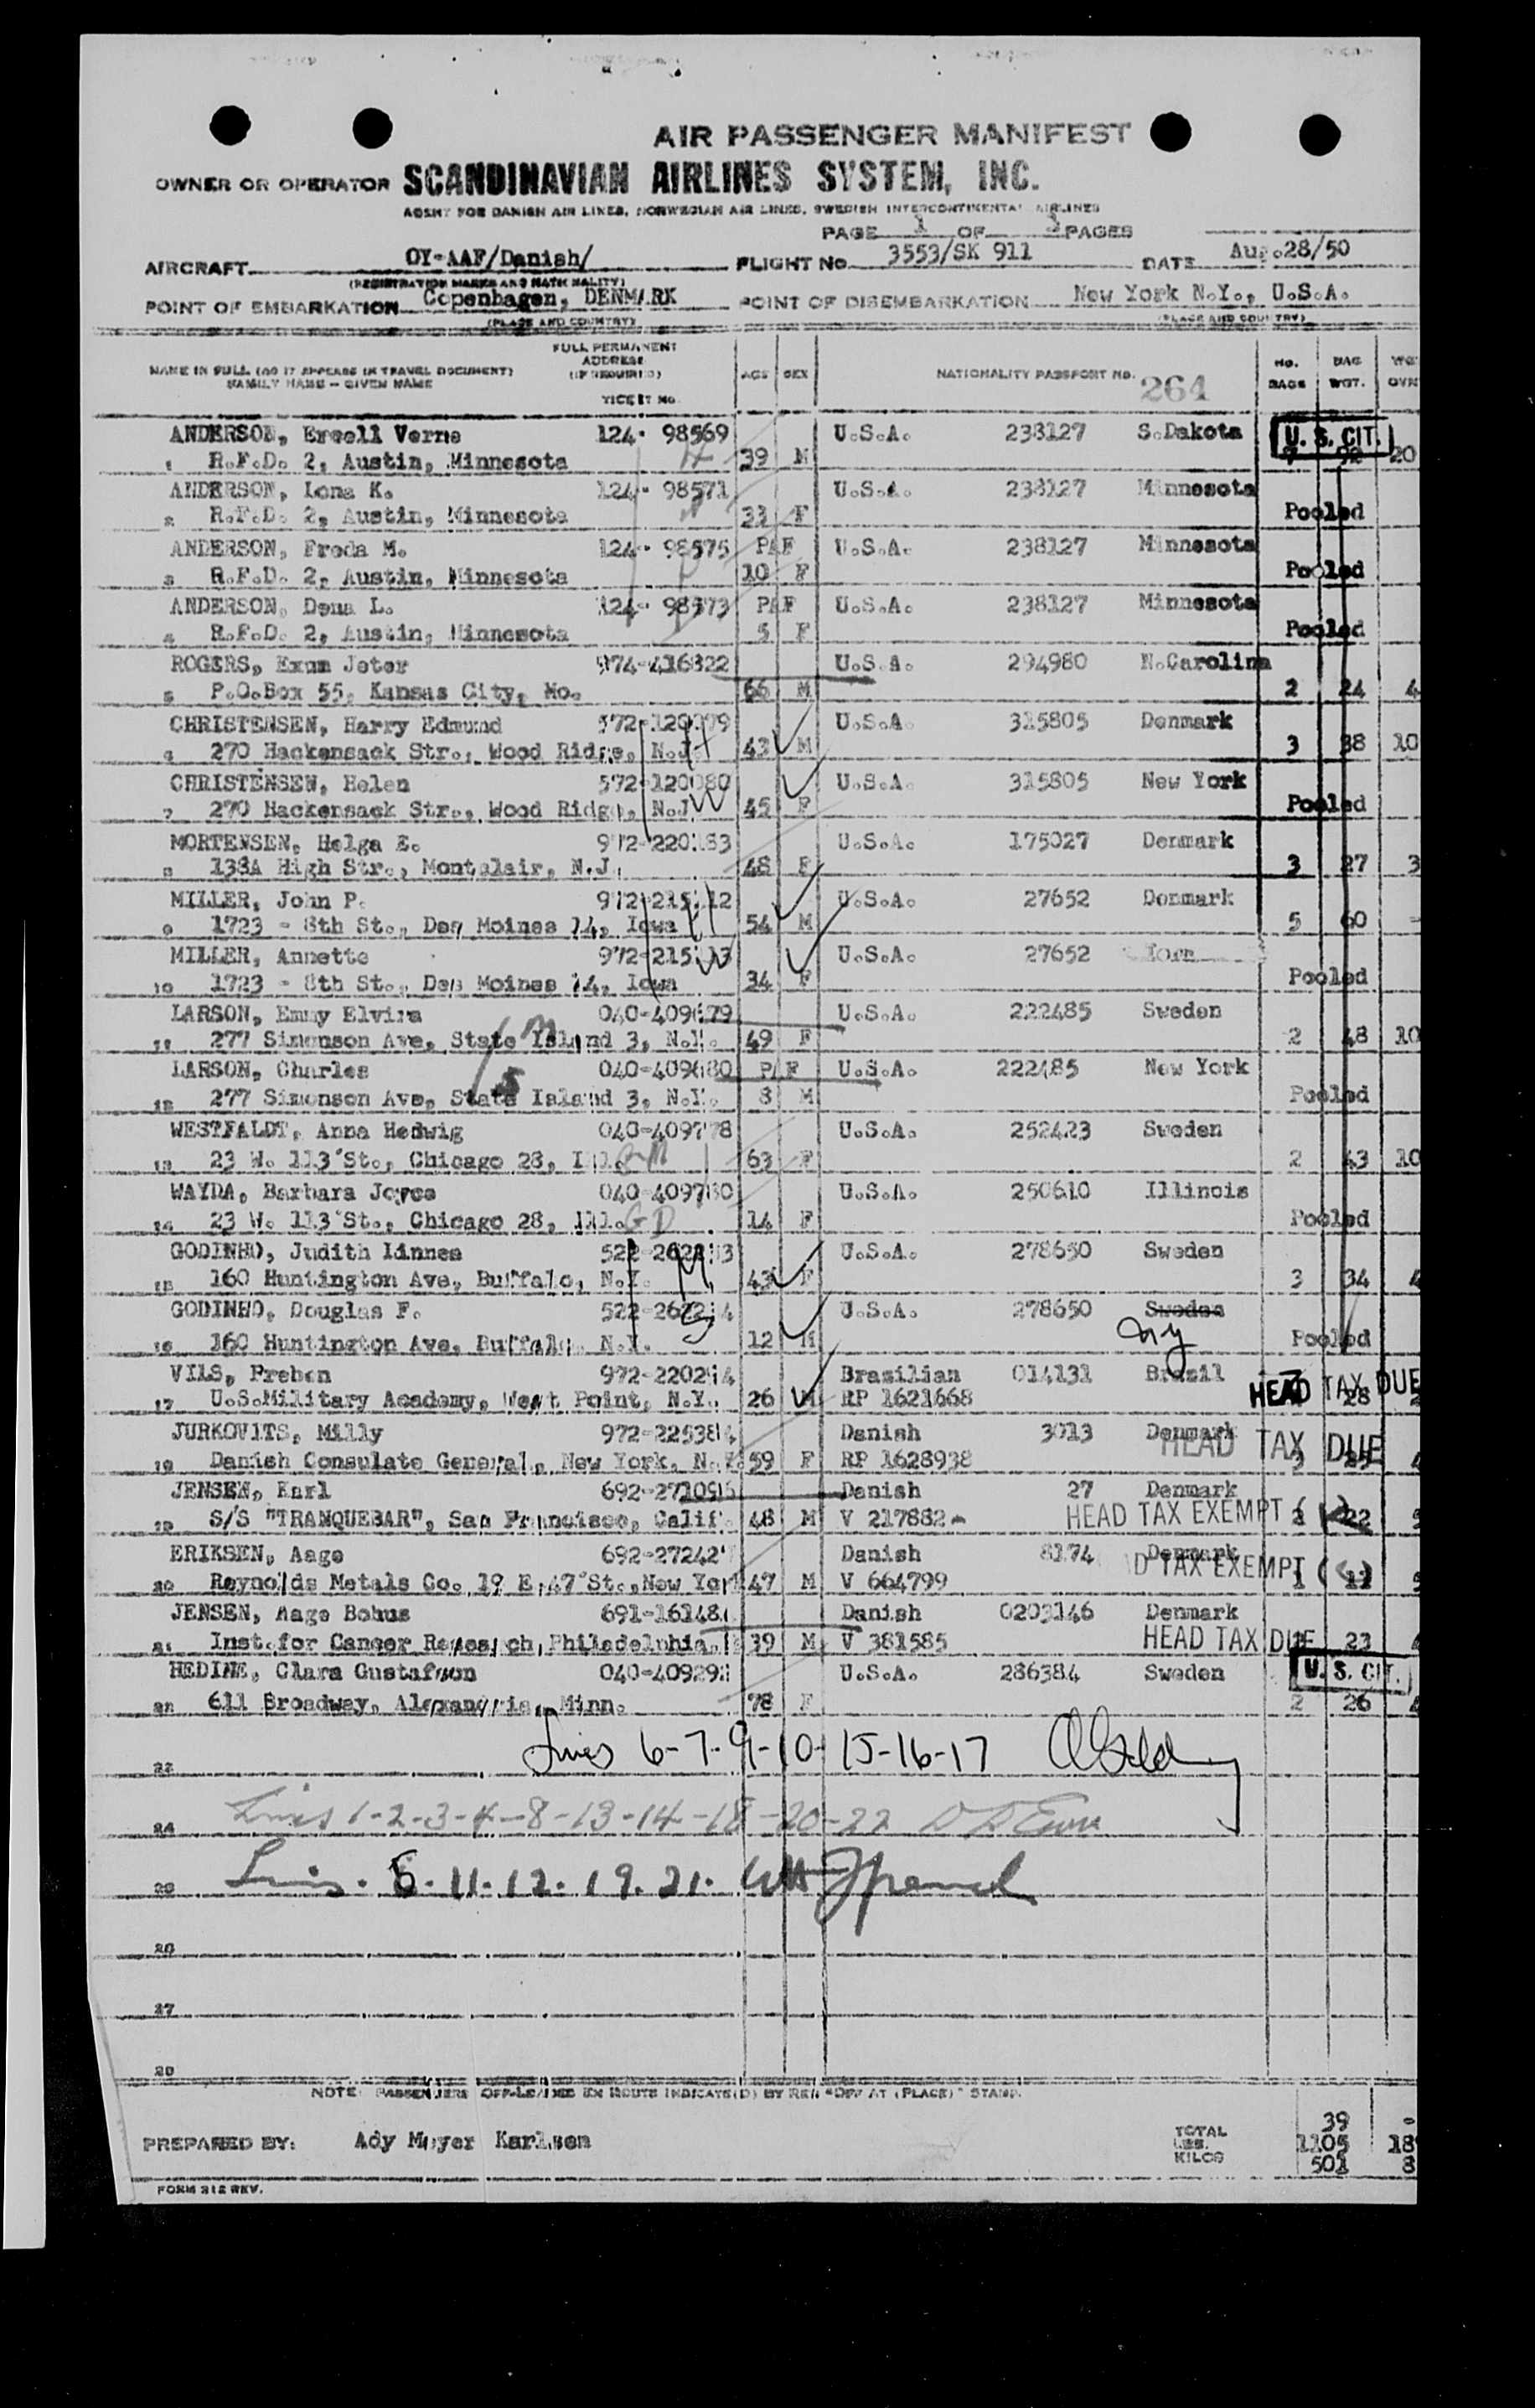 AIR PASSENGER MANIFEST
OWNER OR OPERATOR SCANDINAVIAN AIRLINES SYSTEM, INC.
AGENT FOR DANISH AIR LINES, NORWEGIAN AIR LINES, SWEDISH INTERCONTINENTAL AIRLINES
PAGE 1 OF 3 PAGES
AIRCRAFT OY-AAF/Danish/ FLIGHT No 3553/SK 911 DATE Aug.28/50
(REGISTRATION MARKS AND NATIONALITY)
POINT OF EMBARKATION Copenhagen, DENMARK POINT OF DISEMBARKATION New York N.Y., U.S.A.
(PLACE AND COUNTRY) (PLACE AND COUNTRY)
NAME IN FULL (AS IT APPEARS IN TRAVEL DOCUMENT) FAMILY NAME - GIVEN NAME
FULL PERMANENT ADDRESS (IF REQUIRED) TICKET No. AGE SEX NATIONALITY PASSPORT NO. 264 NO. BAGS BAG WGT.
ANDERSON, Ercell Verne 124- 98569 U.S.A. 238127 S.Dakota U. S. CIT.
1 R.F.D. 2, Austin, Minnesota 39 M 7 92 20
ANDERSON, Lona K. 124- 98571 U.S.A. 238127 Minnesota
2 R.F.D. 2, Austin, Minnesota 33 F Pooled
ANDERSON, Freda M. 124- 98575 PAF U.S.A. 238127 Minnesota
3 R.F.D. 2, Austin, Minnesota 10 F Pooled
ANDERSON, Dena L. 124- 98573 PAF U.S.A. 238127 Minnesota
4 R.F.D. 2, Austin, Minnesota 5 F Pooled
ROGERS, Exum Jeter 974-416822 U.S.A. 294980 N.Carolina
5 P.O.Box 55, Kansas City, Mo. 66 M 2 24 4
CHRISTENSEN, Harry Edmund 572-120079 U.S.A. 315805 Denmark
6 270 Hackensack Str., Wood Ridge, N.J. 43 M 3 38 10
CHRISTENSEN, Helen 572-120080 U.S.A. 315805 New York
7 270 Hackensack Str., Wood Ridge, N.J. 45 F Pooled
MORTENSEN, Helga E. 972-220183 U.S.A. 175027 Denmark
8 138A High Str., Montclair, N.J. 48 F 3 27 3
MILLER, John P. 972-215112 U.S.A. 27652 Denmark
9 1723 - 8th St., Des Moines 14, Iowa 54 M 5 60 -
MILLER, Annette 972-215113 U.S.A. 27652 Iowa
10 1723 - 8th St., Des Moines 14, Iowa 34 F Pooled
LARSON, Emmy Elvira 040-409679 U.S.A. 222485 Sweden
11 277 Simonson Ave, State Island 3, N.Y. 49 F 2 48 10
LARSON, Charles 040-409680 PAF U.S.A. 222485 New York
12 277 Simonson Ave, State Island 3, N.Y. 8 M Pooled
WESTFALDT, Anna Hedwig 040-409778 U.S.A. 252423 Sweden
13 23 W. 113'St., Chicago 28, Ill. 63 F 2 43 10
WAYDA, Barbara Joyce 040-409780 U.S.A. 250610 Illinois
14 23 W. 113'St., Chicago 28, Ill. GD 14 F Pooled
GODINHO, Judith Linnea U.S.A. 278650 Sweden
15 160 Huntington Ave, Buffalo, N.Y. 43 F 3 34 4
GODINHO, Douglas F. U.S.A. 278650 Sweden
16 160 Huntington Ave, Buffalo, N.Y. 12 M ny Pooled
VILS, Preben 972-220214 Brasilian 014131 Brazil
17 U.S.Military Academy, West Point, N.Y. 26 M RP 1621668 HEAD TAX DUE 28
JURKOVITS, Milly 972-225384 Danish 3013 Denmark
18 Danish Consulate General, New York, N.Y. 59 F RP 1628938 HEAD TAX DUE
JENSEN, Karl 692-271096 Danish 27 Denmark
19 S/S "TRANQUEBAR", San Francisco, Calif. 48 M V 217882 HEAD TAX EXEMPT 22
ERIKSEN, Aage 692-27242 Danish 8174 Denmark
20 Reynolds Metals Co. 19 E.47'St., New York 47 M V 664799 HEAD TAX EXEMPT 1
JENSEN, Aage Bohus 691-16148 Danish 0203146 Denmark
21 Inst.for Cancer Research, Philadelphia, 39 M V 381585 HEAD TAX DUE 23
HEDINE, Clara Gustafson 040-409292 U.S.A. 286384 Sweden U. S. CIT.
22 611 Broadway, Alexandria, Minn. 78 F 2 26 4
23 Lines 6-7-9-10-15-16-17
24 Lines 1-2-3-4-8-13-14-18-20-22
25 Lines. 5.11.12.19.21.
26
27
28
NOTE: PASSENGERS OFF-LOADED EN ROUTE INDICATE(D) BY RED "OFF AT (PLACE)" STAMP.
PREPARED BY: Ady Meyer Karlsen
TOTAL 39 -
LBS. 1105 18
KILOS 501 8
FORM 212 REV.